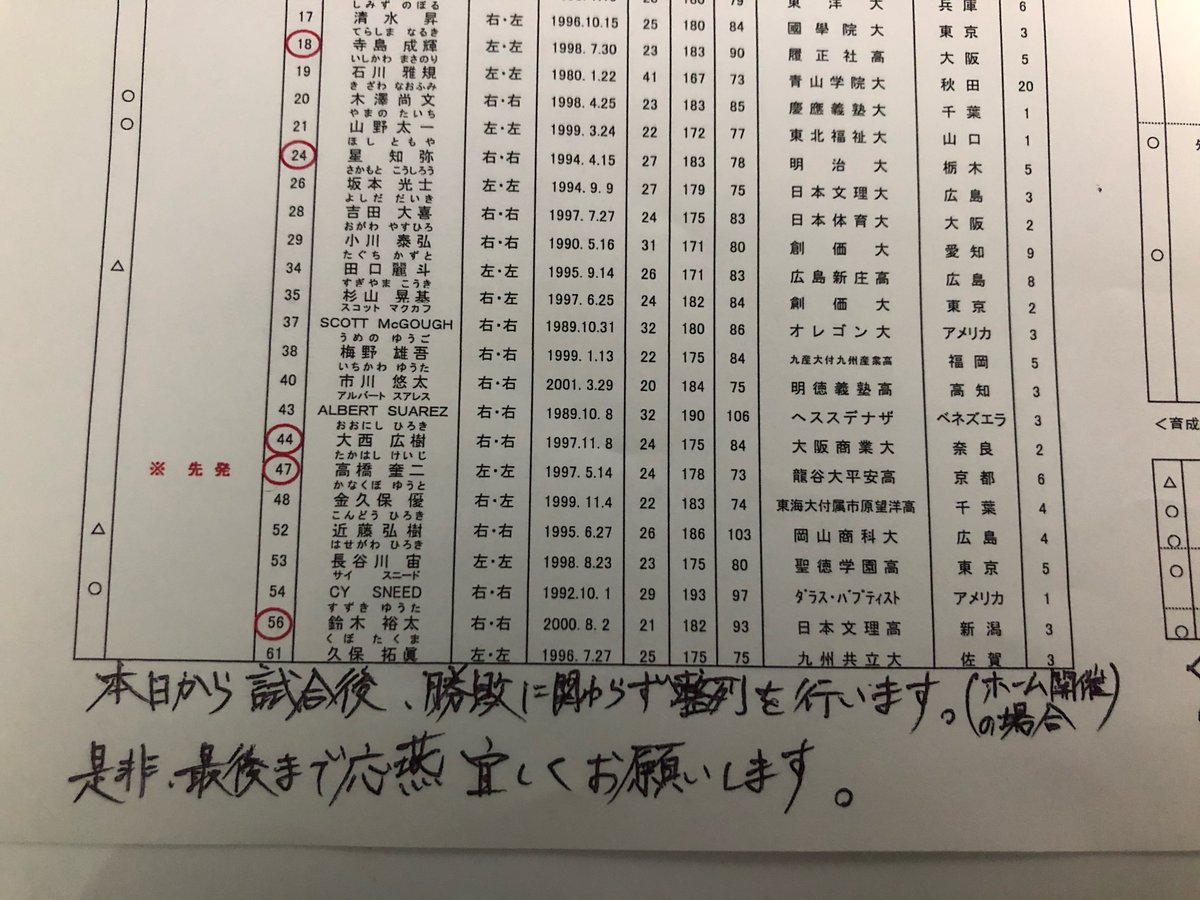 しみず のぼる
17 清水 昇 右・左 1996.10.15 25 180 84 國學院大 東京 3
てらしま なるき
18 寺島 成輝 左・左 1998.7.30 23 183 90 履正社高 大阪 5
いしかわ まさのり
19 石川 雅規 左・左 1980.1.22 41 167 73 青山学院大 秋田 20
きざわ なおふみ
20 木澤 尚文 右・右 1998.4.25 23 183 85 慶應義塾大 千葉 1
やまの たいち
21 山野 太一 左・左 1999.3.24 22 172 77 東北福祉大 山口 1
ほし ともや
24 星 知弥 右・右 1994.4.15 27 183 78 明治大 栃木 5
さかもと こうしろう
26 坂本 光士 左・左 1994.9.9 27 179 75 日本文理大 広島 3
よしだ だいき
28 吉田 大喜 右・右 1997.7.27 24 175 83 日本体育大 大阪 2
おがわ やすひろ
29 小川 泰弘 右・右 1990.5.16 31 171 80 創価大 愛知 9
たぐち かずと
34 田口 麗斗 左・左 1995.9.14 26 171 83 広島新庄高 広島 8
すぎやま こうき
35 杉山 晃基 右・左 1997.6.25 24 182 84 創価大 東京 2
スコット マクガフ
37 SCOTT McGOUGH 右・右 1989.10.31 32 180 86 オレゴン大 アメリカ 3
うめの ゆうご
38 梅野 雄吾 右・右 1999.1.13 22 175 84 九産大付九州産業高 福岡 5
いちかわ ゆうた
40 市川 悠太 右・右 2001.3.29 20 184 75 明徳義塾高 高知 3
アルバート スアレス
43 ALBERT SUAREZ 右・右 1989.10.8 32 190 106 ヘススデナザ ベネズエラ 3
おおにし ひろき
44 大西 広樹 右・右 1997.11.8 24 175 84 大阪商業大 奈良 2
たかはし けいじ
※ 先発 47 高橋 奎二 左・左 1997.5.14 24 178 73 龍谷大平安高 京都 6
かなくぼ ゆうと
48 金久保 優 右・左 1999.11.4 22 183 74 東海大付属市原望洋高 千葉 4
こんどう ひろき
52 近藤 弘樹 右・右 1995.6.27 26 186 103 岡山商科大 広島 4
はせがわ ひろき
53 長谷川 宙 左・左 1998.8.23 23 175 80 聖徳学園高 東京 5
サイ スニード
54 CY SNEED 右・右 1992.10.1 29 193 97 ダラス・バプティスト アメリカ 1
すずき ゆうた
56 鈴木 裕太 右・右 2000.8.2 21 182 93 日本文理高 新潟 3
くぼ たくま
61 久保 拓眞 左・左 1996.7.27 25 175 75 九州共立大 佐賀 3
<育成
本日から試合後、勝敗に関わらず整列を行います。(ホーム開催の場合)
是非、最後まで応燕宜しくお願いします。